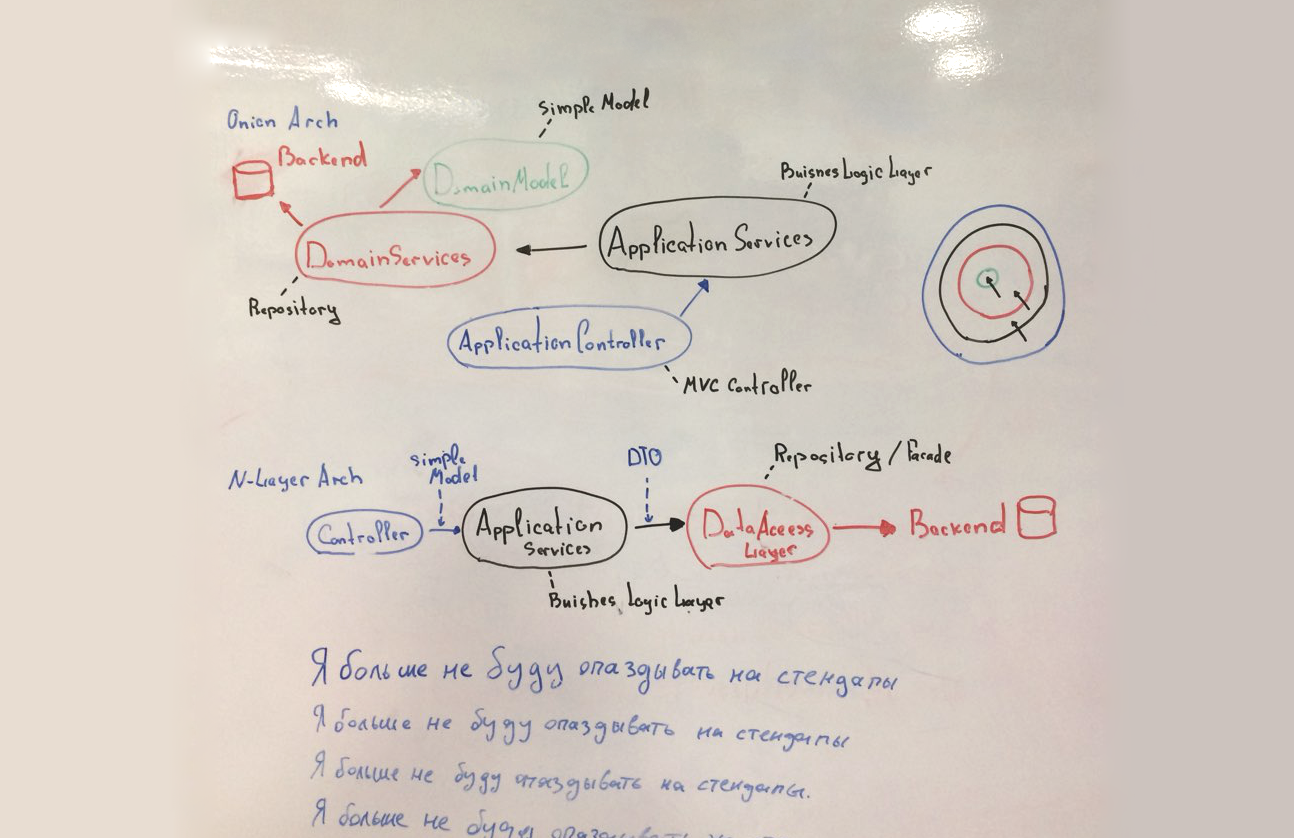 Onion Arch
simple Model
Backend
DomainModel
Buisnes Logic Layer
DomainServices
Application Services
Repository
Application Controller
MVC Controller
N-Layer Arch
simple
Model
DTO
Repository / Facade
Controller
Application
Services
DataAcess
Layer
Backend
Buisnes Logic Layer
Я больше не буду опаздывать на стендапы
Я больше не буду опаздывать на стендапы
Я больше не буду опаздывать на стендапы.
Я больше не буду опаздывать